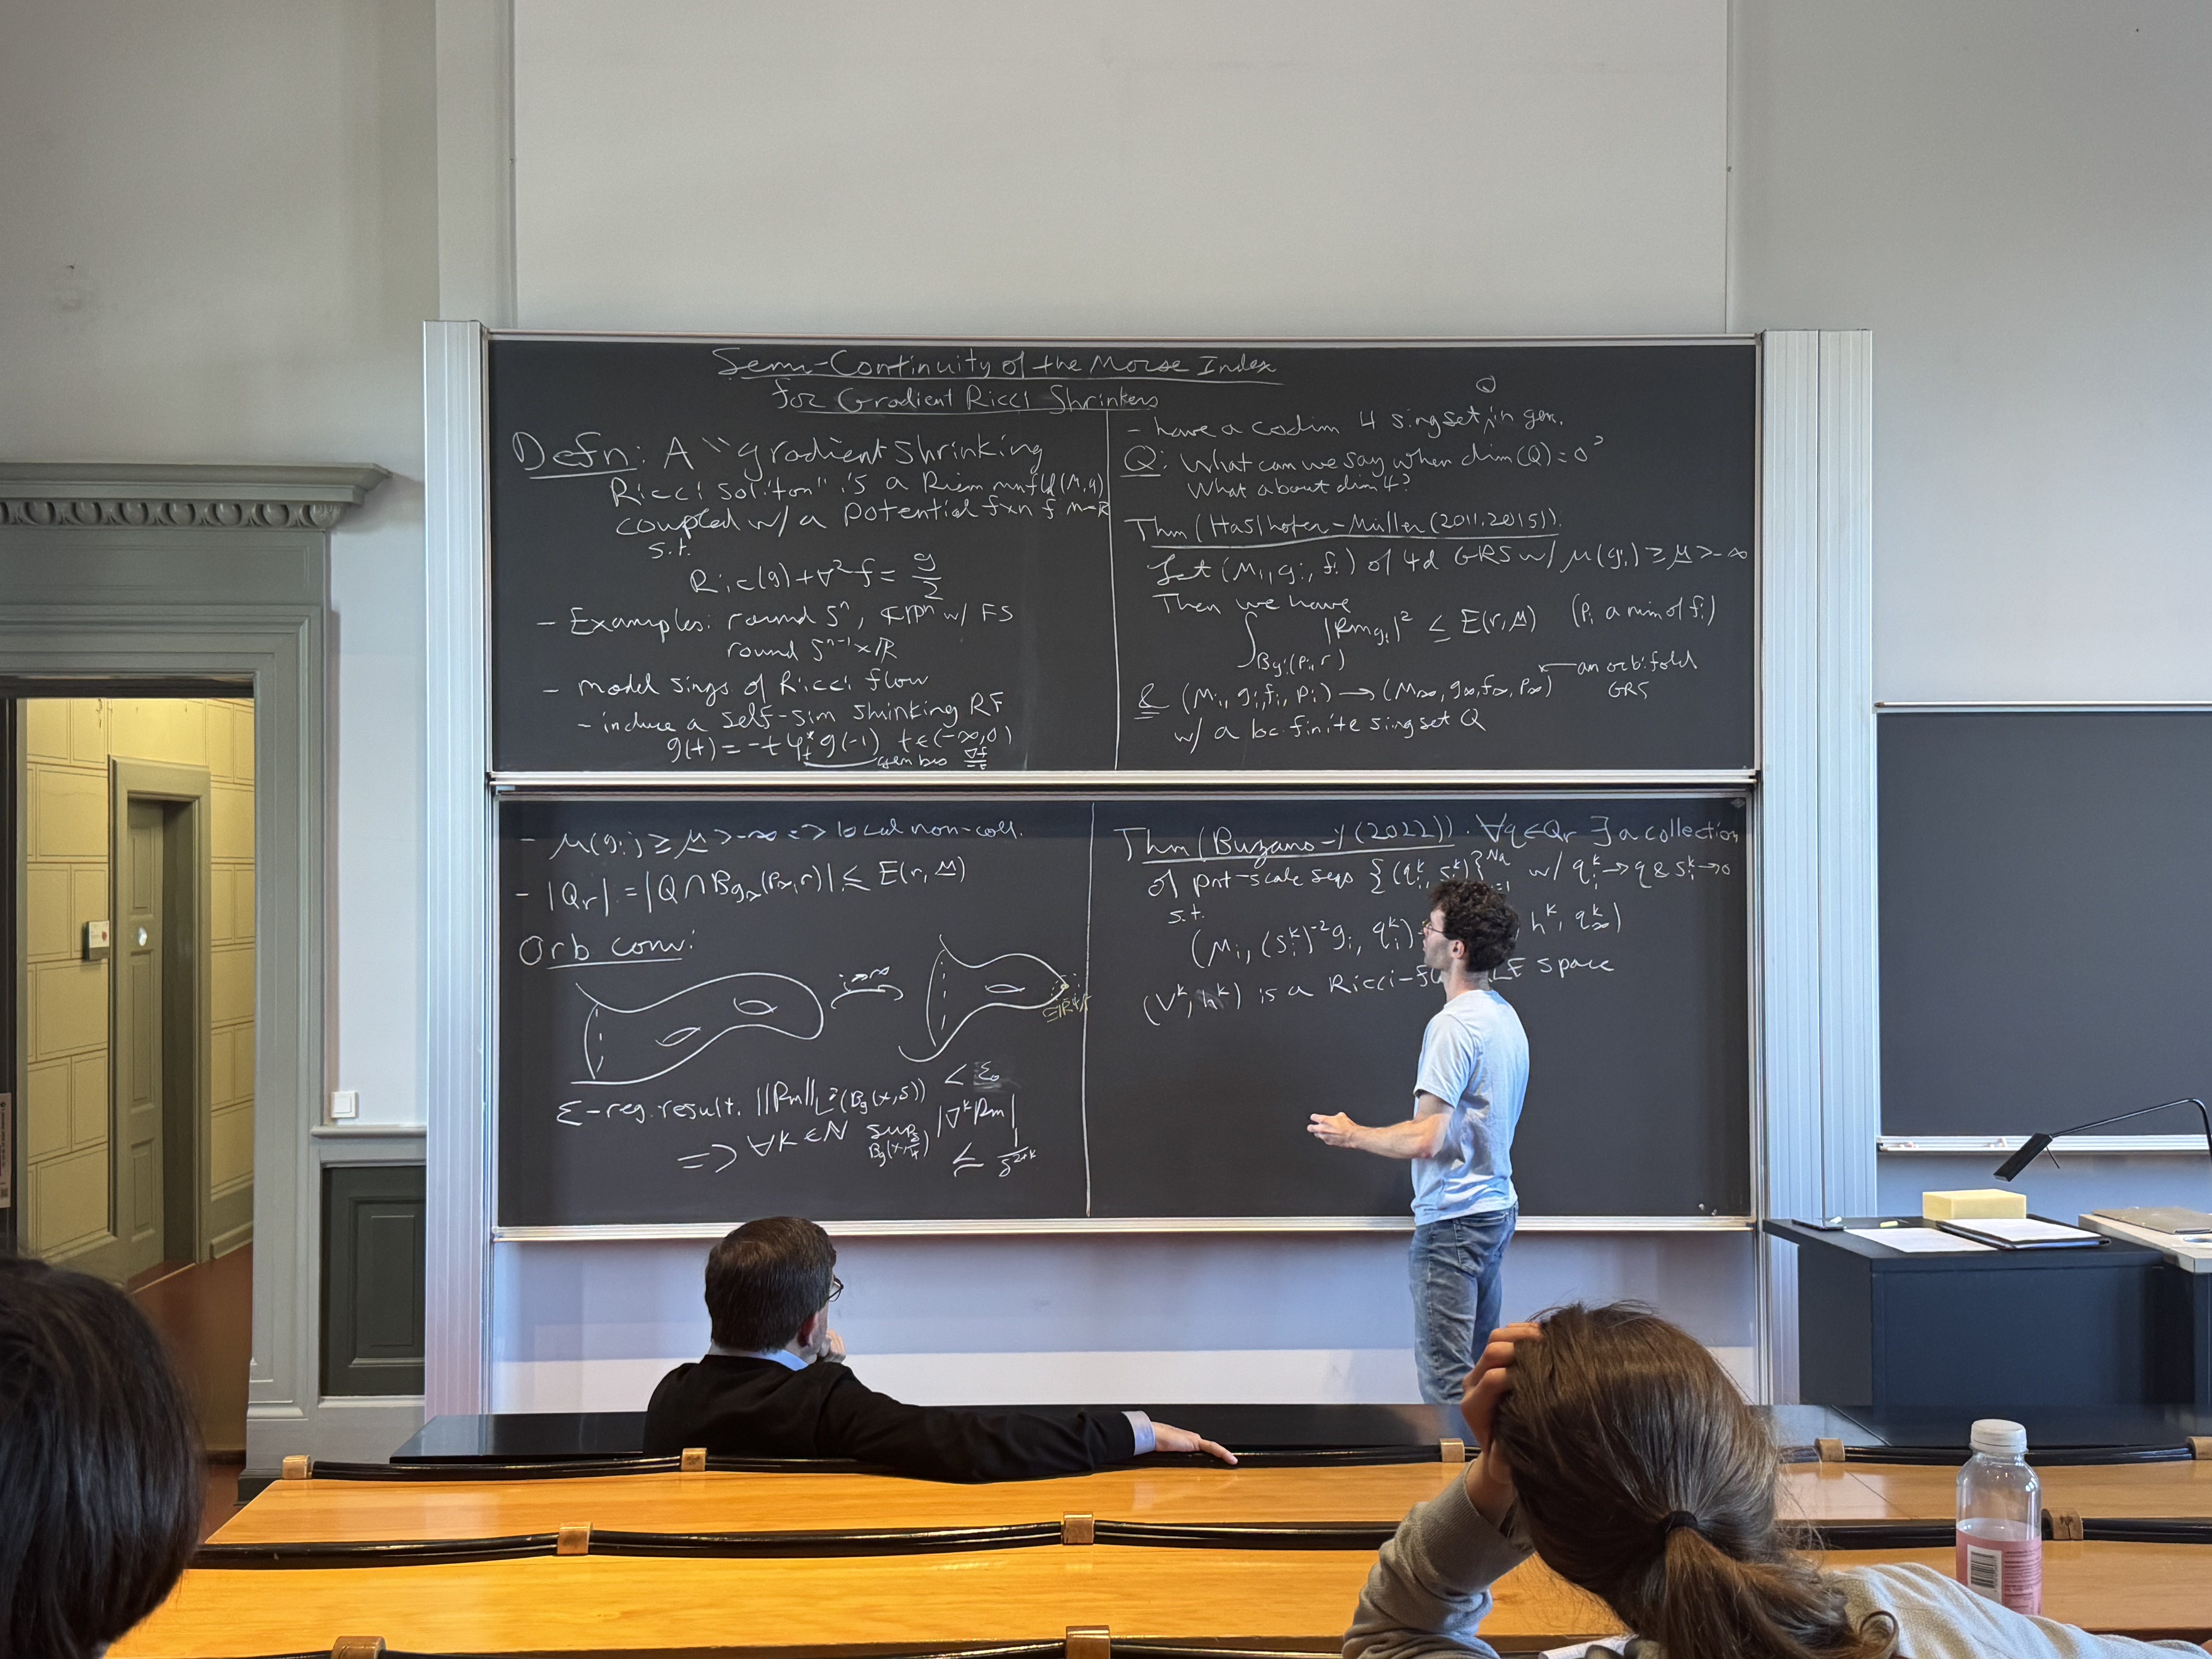 Semi-Continuity of the Morse Index
for Gradient Ricci Shrinkers
Defn: A "gradient shrinking
Ricci soliton" is a Riem mnfld (M,g)
coupled w/ a potential fxn f: M→R
s.t.
Ric(g)+∇²f = g/2
- Examples: round Sⁿ, ℂPⁿ w/ FS
round Sⁿ⁻¹×ℝ
- model sings of Ricci flow
- induce a self-sim shrinking RF
g(t) = -t φₜ* g(-1) t∈(-∞,0)
gen by ∇f/-t
Q
- have a codim 4 sing set, in gen.
Q: What can we say when dim(Q)=0?
What about dim 4?
Thm (Haslhofer-Müller (2011,2015)).
Let (Mᵢ, gᵢ, fᵢ) of 4d GRS w/ μ(gᵢ) ≥ μ > -∞
Then we have
∫_{B_{gᵢ}(pᵢ,r)} |Rm_{gᵢ}|² ≤ E(r,μ) (pᵢ a min of fᵢ)
& (Mᵢ, gᵢ, fᵢ, pᵢ) → (M∞, g∞, f∞, p∞) ← an orbifold
GRS
w/ a loc. finite sing set Q
- μ(gᵢ) ≥ μ > -∞ => local non-coll.
- |Qᵣ| := |Q ∩ B_{g∞}(p∞,r)| ≤ E(r,μ)
Orb conv:
i→∞
ε-reg. result. ||Rm||_{L²(B_g(x,δ))} < ε₀
=> ∀k∈N sup_{B_g(x,δ/4)} |∇ᵏRm|
≤ 1/δ²⁺ᵏ
Thm (Buzano-Y (2022)). ∀q∈Qᵣ ∃ a collection
of pnt-scale seqs {(qᵢᵏ, sᵢᵏ)} w/ qᵢᵏ→q & sᵢᵏ→0
s.t.
(Mᵢ, (sᵢᵏ)⁻²gᵢ, qᵢᵏ) hᵏ, q∞ᵏ)
(Vᵏ, hᵏ) is a Ricci- space